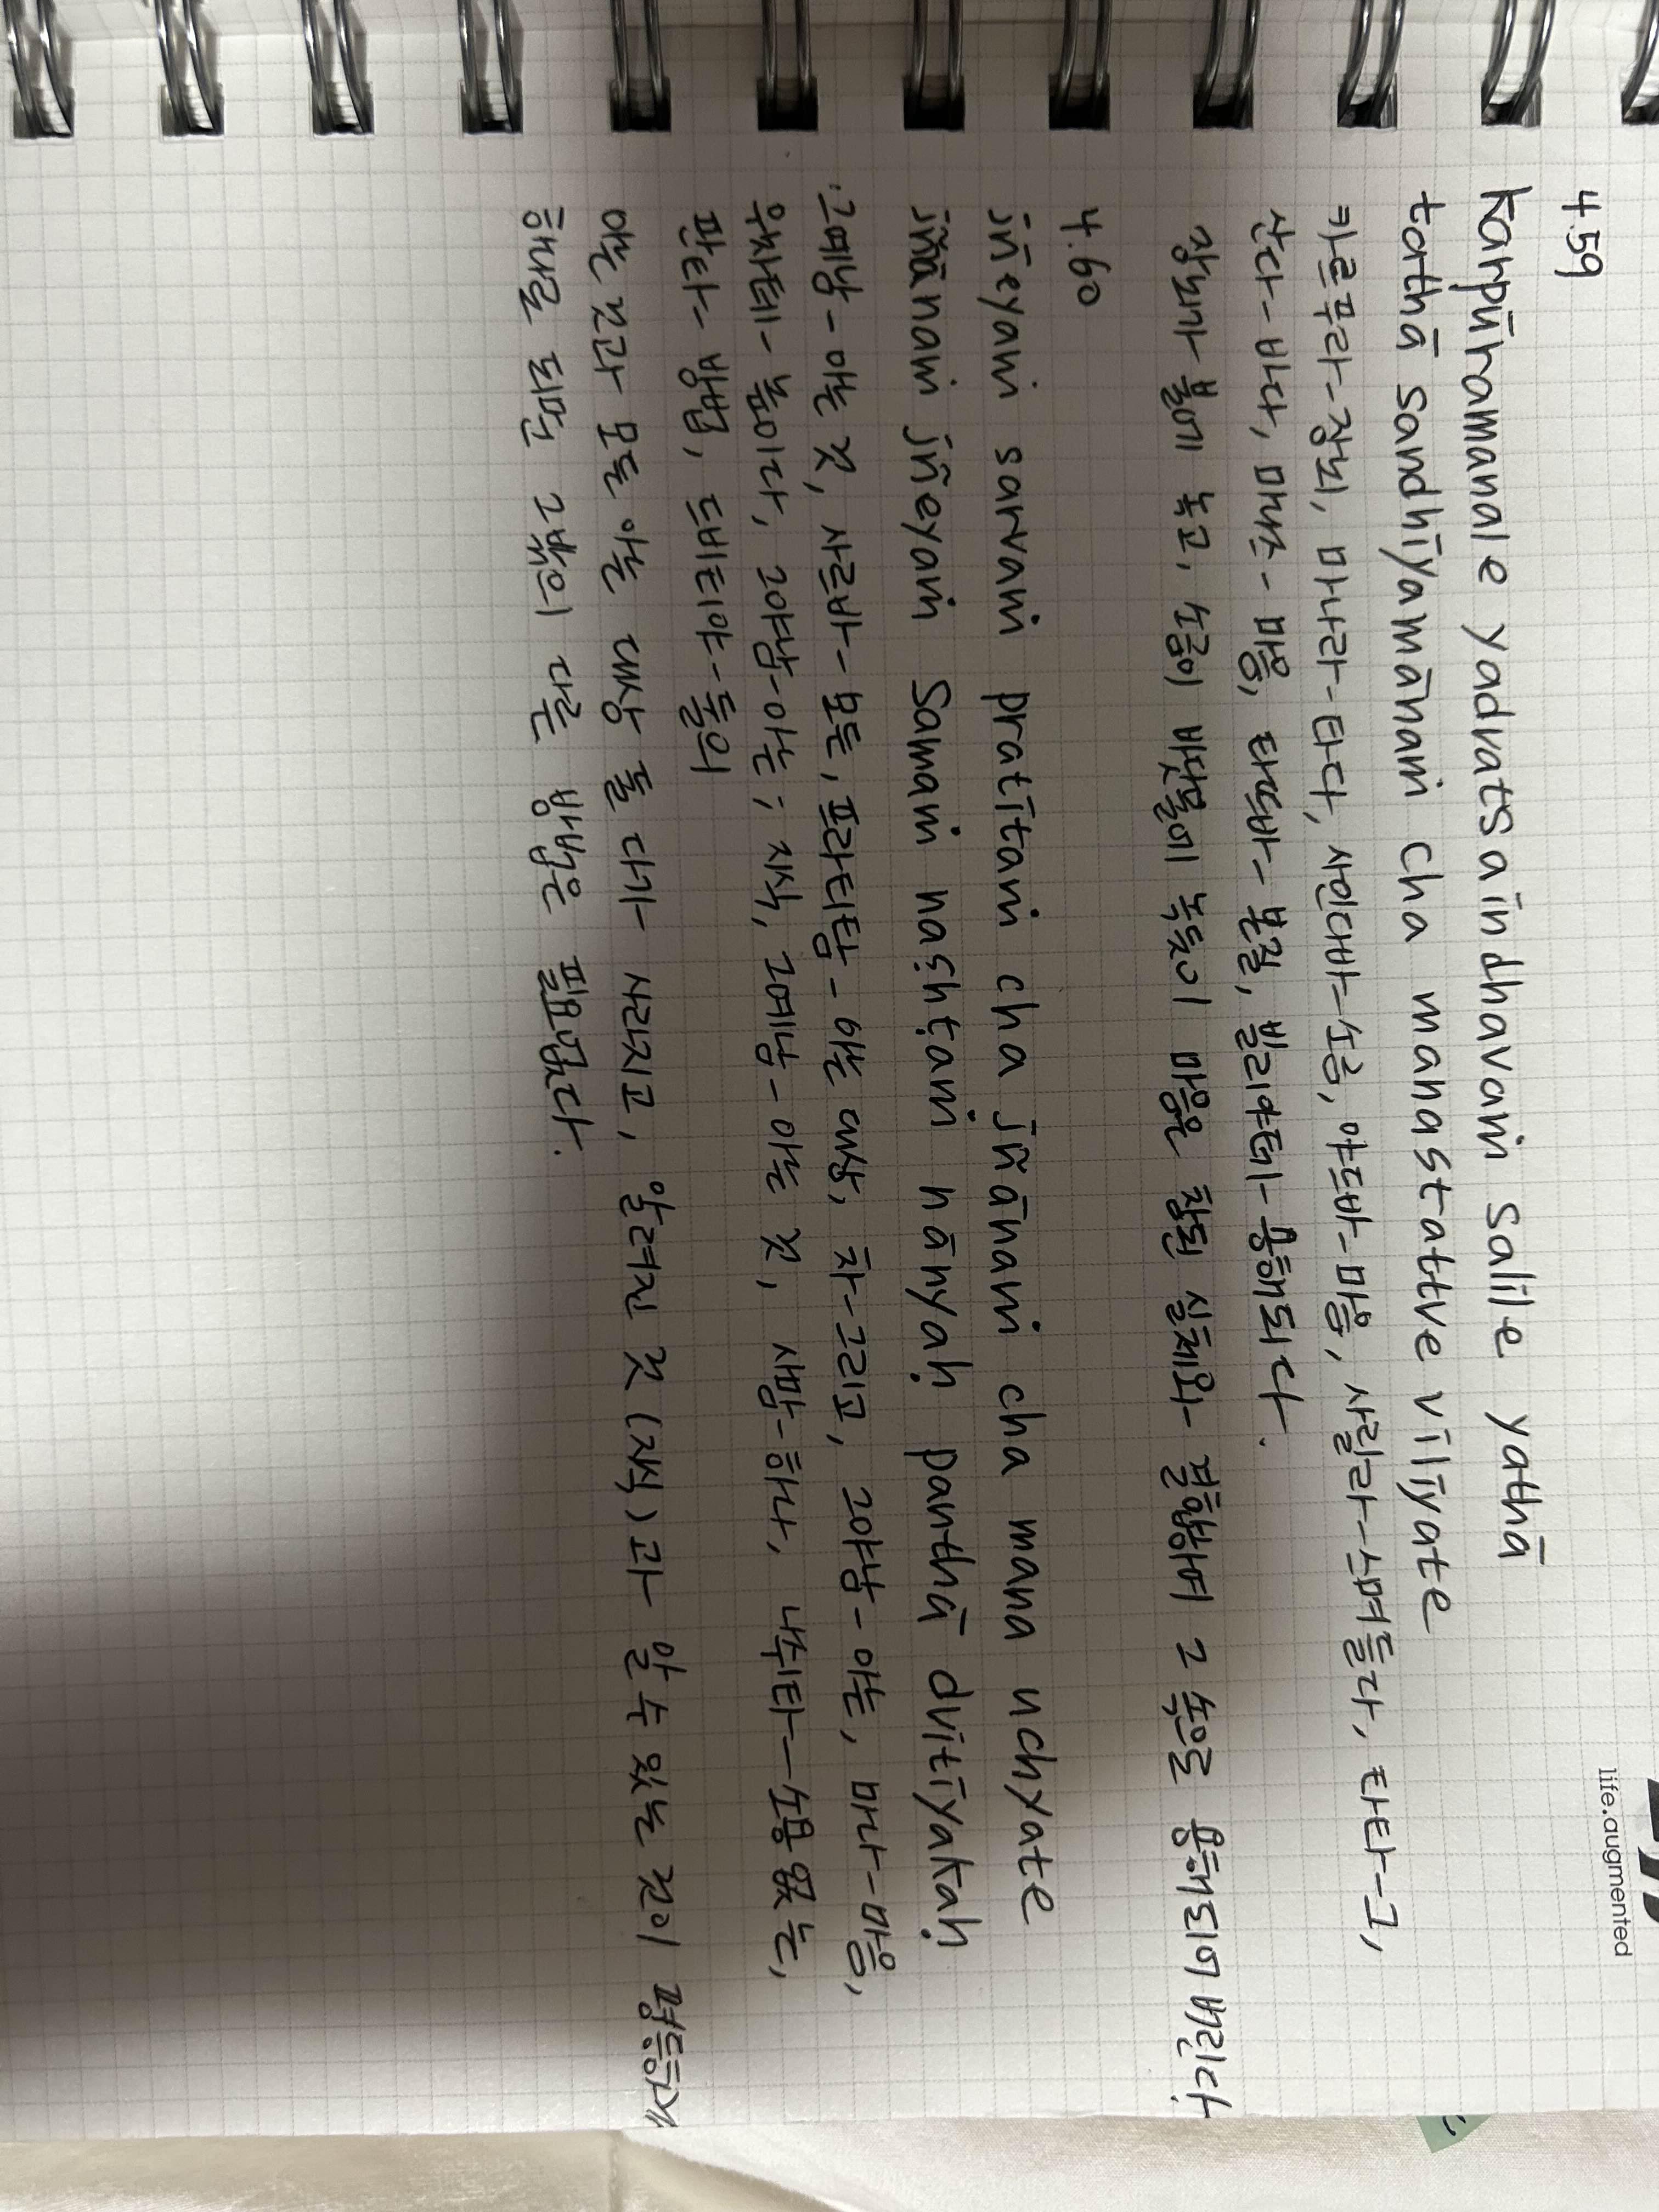 life.augmented
4.59
karpūramanale yadvatsaindhavaṁ salile yathā
tathā sandhīyamānaṁ cha manastattve vilīyate
카르푸라-장뇌, 마나라-타다, 사인다바-소금, 야드바-마음, 사릴라-스며들다, 타타-그,
산다-바다, 마나스-마음, 타뜨바-본질, 빌리야테-용해되다.
장뇌가 불에 녹고, 소금이 바닷물에 녹듯이 마음은 참된 실체와 결합하여 그 속으로 용해되어 버린다.
4.60
jñeyaṁ sarvaṁ pratītaṁ cha jñānaṁ cha mana uchyate
jñānaṁ jñeyaṁ samaṁ naṣhṭaṁ nānyaḥ panthā dvitīyakaḥ
그예남-아는 것, 사르바-모든, 프라티탐-아는 대상, 차-그리고, 갸남-아는, 마나-마음,
우차테-높이다, 갸남-아는; 지식, 그예남-아는 것, 사맘-하나, 나쉬타-소용없는,
판타-방법, 드비티야-둘의
아는 것과 모든 아는 대상 둘 다가 사라지고, 알려진 것 (지식)과 알 수 있는 것이 평등하게
하나로 되면 그밖의 다른 방법은 필요없다.